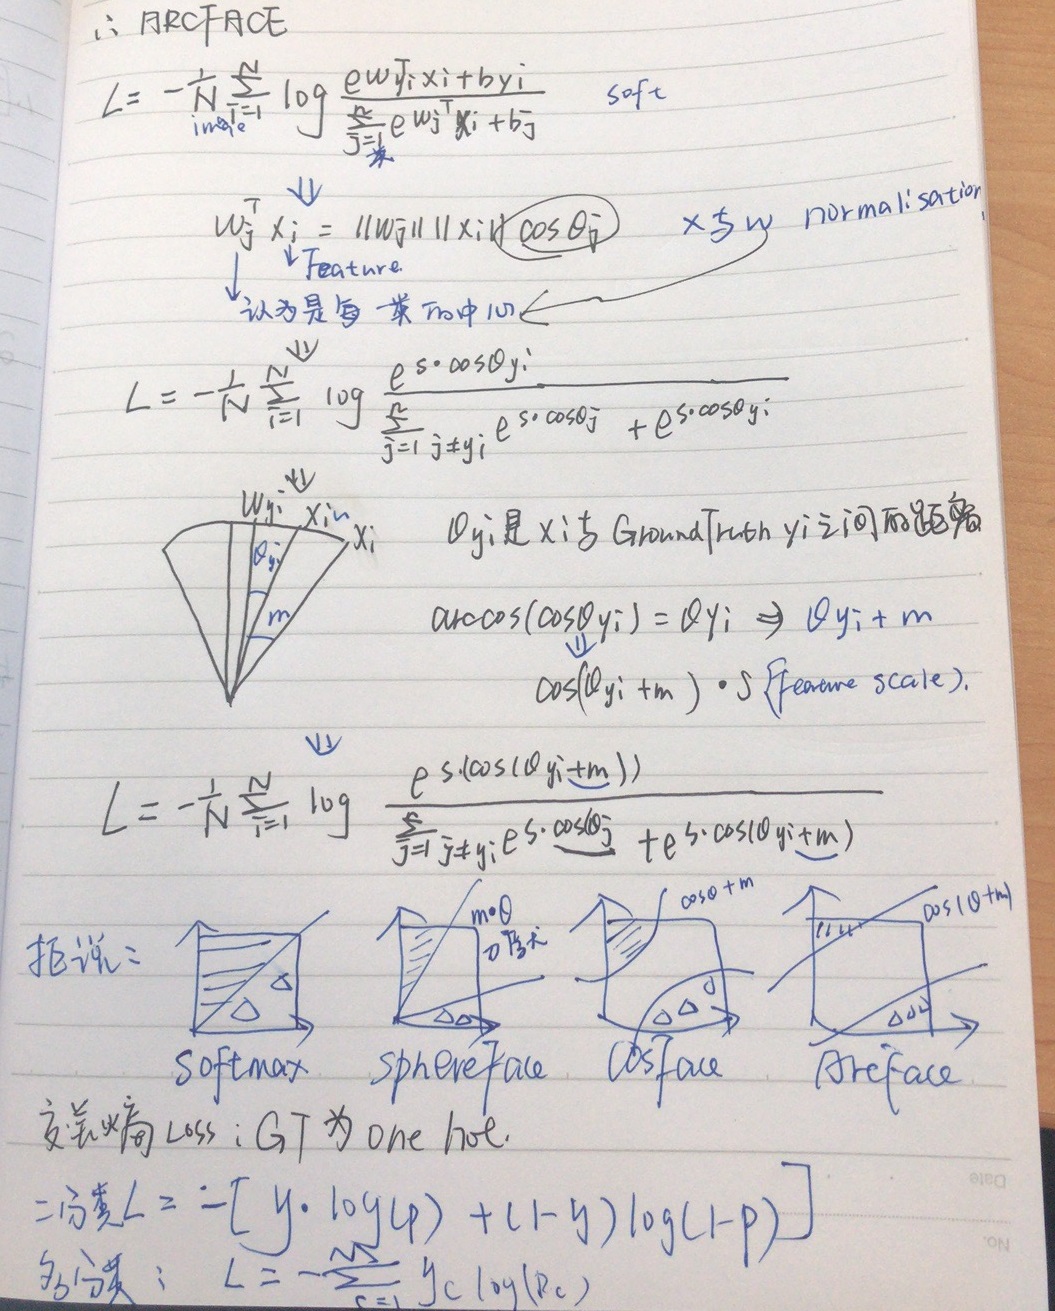 ARCFACE
L = -1/N Σ_{i=1}^{N} log e^{w_{yi}^T xi + b_{yi}} / Σ_{j=1}^{n} e^{w_j^T xi + b_j} soft
image 类
w_j^T xi = ||wj|| ||xi|| cosθj x与w normalisation
Feature
认为是每一类的中心
L = -1/N Σ_{i=1}^{N} log e^{s·cosθyi} / Σ_{j=1 j≠yi}^{n} e^{s·cosθj} + e^{s·cosθyi}
Wyi xi xi
θyi是xi与GroundTruth yi之间的距离
θyi
m
arccos(cosθyi) = θyi ⇒ θyi + m
cos(θyi + m) · s {feature scale).
L = -1/N Σ_{i=1}^{N} log e^{s·(cos(θyi+m))} / Σ_{j=1 j≠yi} e^{s·cosθj} + e^{s·cos(θyi+m)}
m·θ cosθ+m cos(θ+m)
softmax sphereface Cosface Arcface
交叉熵Loss: GT为one hot.
二分类L = -[y·log(p) + (1-y)log(1-p)]
多分类: L = -Σ_{c=1}^{M} yc log(pc)
Date
No.